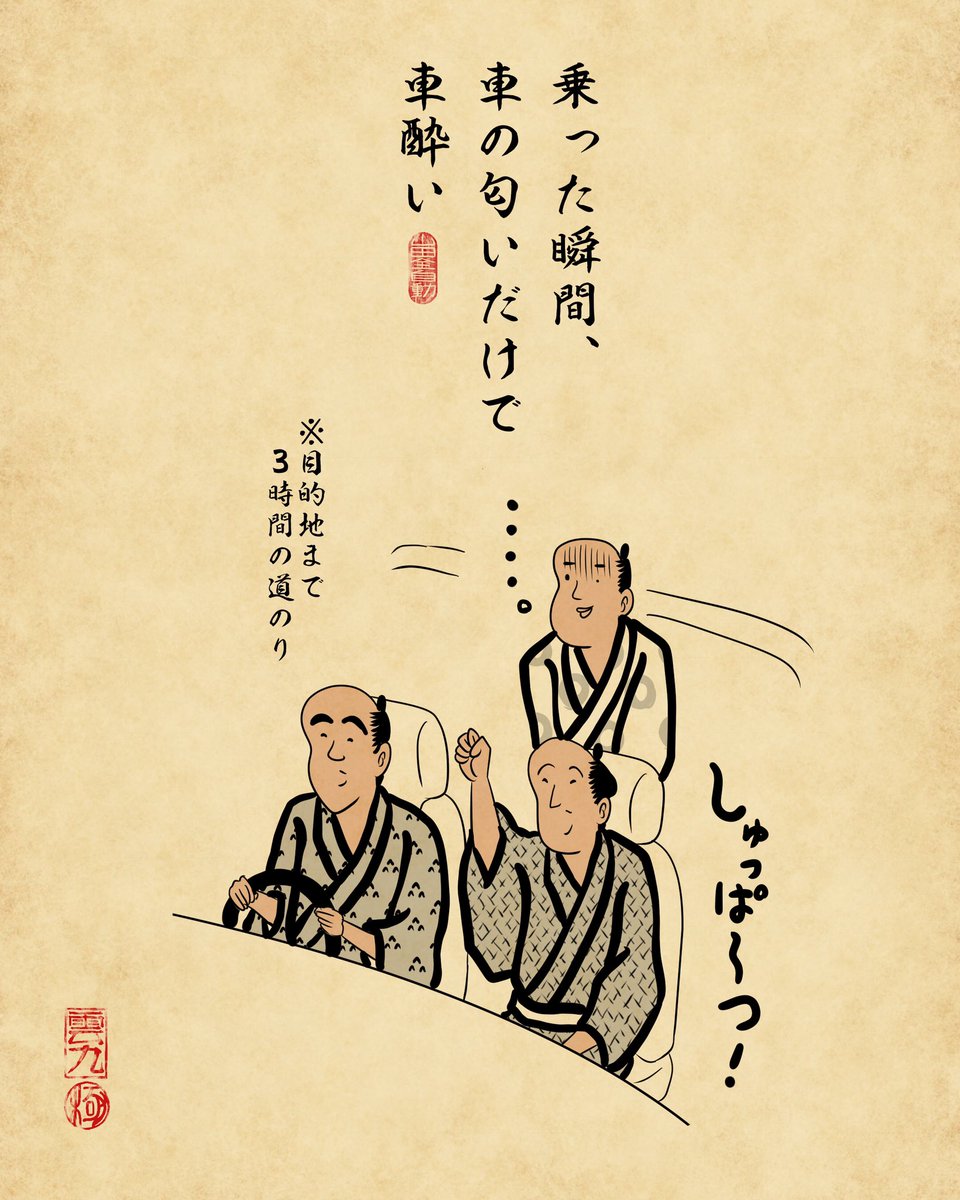 乗った瞬間、
車の匂いだけで
車酔い
※目的地まで
3時間の道のり
・・・・。
しゅっぱ〜つ!